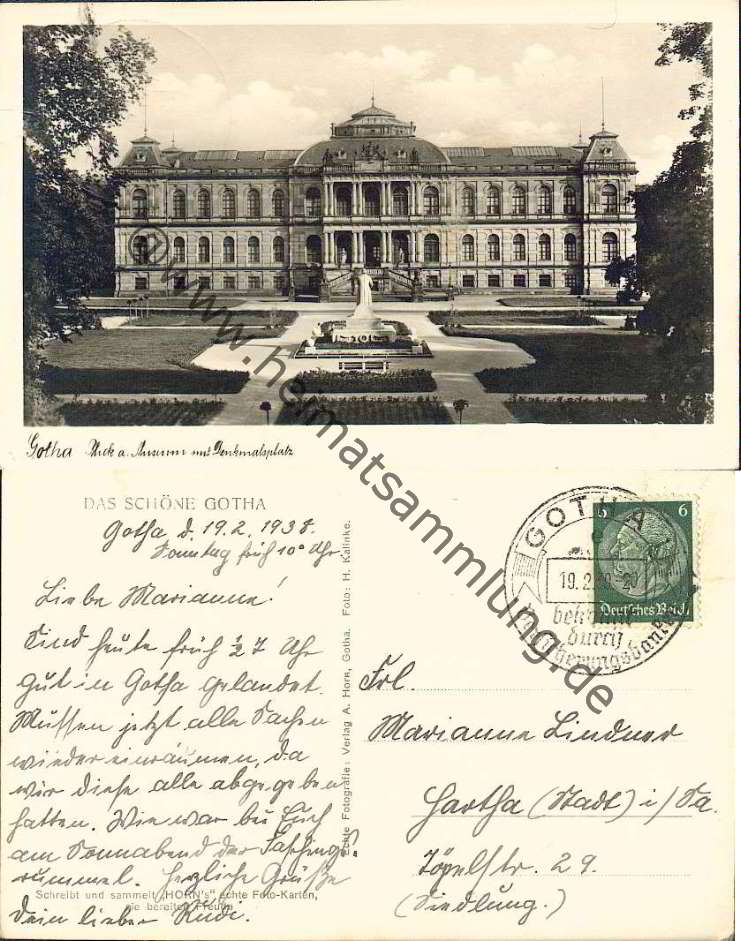 Gotha Blick a. Museum mit Denkmalsplatz
DAS SCHÖNE GOTHA
Gotha d. 19.2.1938.
Sonntag früh 10° Uhr
Liebe Marianne!
Sind heute früh ½ 7 Uhr
gut in Gotha gelandet.
Müssen jetzt alle Sachen
wieder einräumen, da
wir diese alle abgegeben
hatten. Wie war bei Euch
am Sonnabend der Faschings-
rummel. Herzliche Grüße
Dein lieber Rudi.
Schreibt und sammelt „HORN's" echte Foto-Karten,
sie bereiten Freude
Echte Fotografie: Verlag A. Horn, Gotha. Foto: H. Kalinke.
GOTHA
19.2.
bekannt
durch
Versicherungsbanken
6 6
Deutsches Reich
Frl.
Marianne Lindner
Hartha (Stadt) i/Sa.
Töpelstr. 29.
(Siedlung.)
@ www.heimatsammlung.de